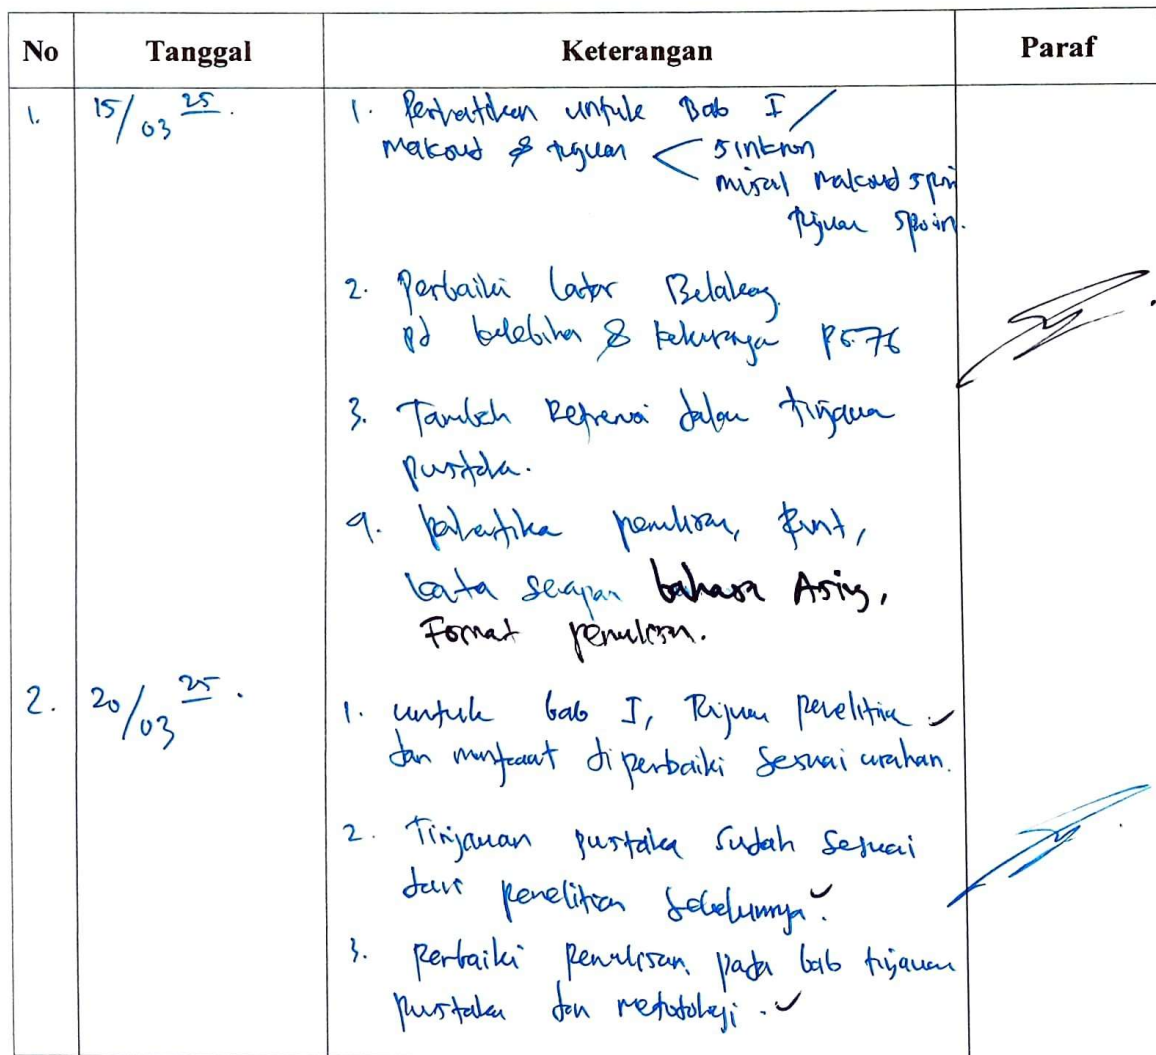 No Tanggal Keterangan Paraf
1. 15/03 25. 1. Perhatikan untuk Bab I /
Maksud & tujuan < sinkron
misal maksud
tujuan
2. Perbaiki Latar Belakang
pd kelebihan & kekurangan
3. Tambah Refrensi dalam tinjauan
pustaka.
4. perhatikan penulisan, Font,
kata serapan bahasa Asing,
Format penulisan.
2. 20/03 25. 1. untuk bab I, Tujuan penelitian ✓
dan manfaat diperbaiki sesuai arahan.
2. Tinjauan pustaka sudah sesuai
dari penelitian sebelumnya ✓.
3. perbaiki penulisan, pada bab tinjauan
pustaka dan metodologi. ✓